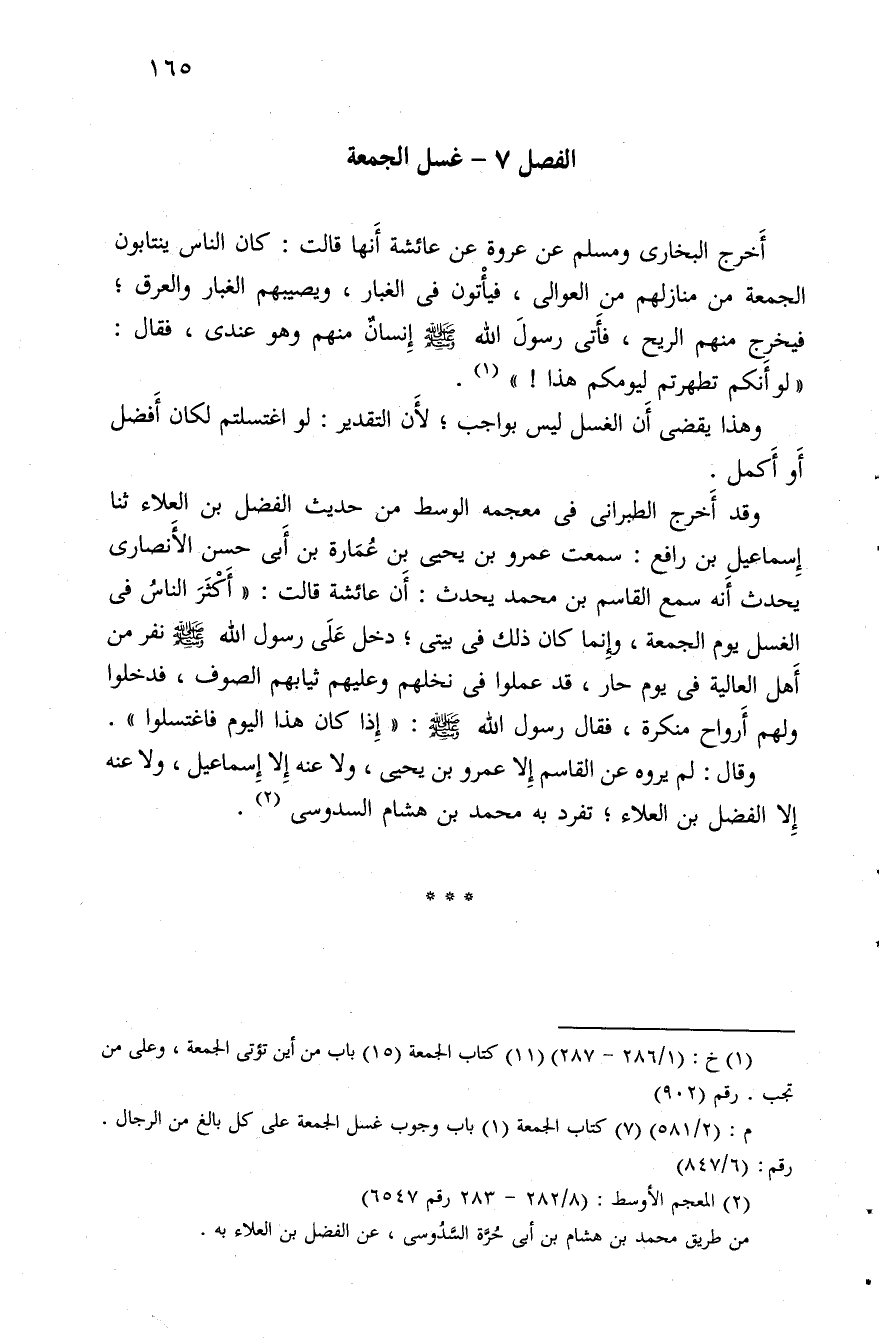 ١٦٥
الفصل ٧ – غسل الجمعة
أَخرج البخارى ومسلم عن عروة عن عائشة أَنها قالت : كان الناس ينتابون
الجمعة من منازلهم من العوالى ، فيأْتون فى الغبار ، ويصيبهم الغبار والعرق ؛
فيخرج منهم الريح ، فأَتى رسولَ الله ﷺ إِنسانٌ منهم وهو عندى ، فقال :
« لو أَنكم تطهرتم ليومكم هذا ! » (١) .
وهذا يقضى أَن الغسل ليس بواجب ؛ لأَن التقدير : لو اغتسلتم لكان أَفضل
أَو أَكمل .
وقد أَخرج الطبرانى فى معجمه الوسط من حديث الفضل بن العلاء ثنا
إِسماعيل بن رافع : سمعت عمرو بن يحيى بن عُمَارة بن أَبى حسن الأَنصارى
يحدث أَنه سمع القاسم بن محمد يحدث : أَن عائشة قالت : « أَكْثَرَ الناسُ فى
الغسل يوم الجمعة ، وإِنما كان ذلك فى بيتى ؛ دخل عَلَى رسول الله ﷺ نفر من
أَهل العالية فى يوم حار ، قد عملوا فى نخلهم وعليهم ثيابهم الصوف ، فدخلوا
ولهم أَرواح منكرة ، فقال رسول الله ﷺ : « إِذا كان هذا اليوم فاغتسلوا » .
وقال : لم يروه عن القاسم إِلا عمرو بن يحيى ، ولا عنه إِلا إِسماعيل ، ولا عنه
إِلا الفضل بن العلاء ؛ تفرد به محمد بن هشام السدوسى (٢) .
* * *
(١) خ : (٢٨٦/١ – ٢٨٧) (١١) كتاب الجمعة (١٥) باب من أين تؤتى الجمعة ، وعلى من
تجب . رقم (٩٠٢)
م : (٥٨١/٢) (٧) كتاب الجمعة (١) باب وجوب غسل الجمعة على كل بالغ من الرجال .
رقم : (٨٤٧/٦)
(٢) المعجم الأوسط : (٢٨٢/٨ – ٢٨٣ رقم ٦٥٤٧)
من طريق محمد بن هشام بن أبى حُرَّة السَّدُوسى ، عن الفضل بن العلاء به .